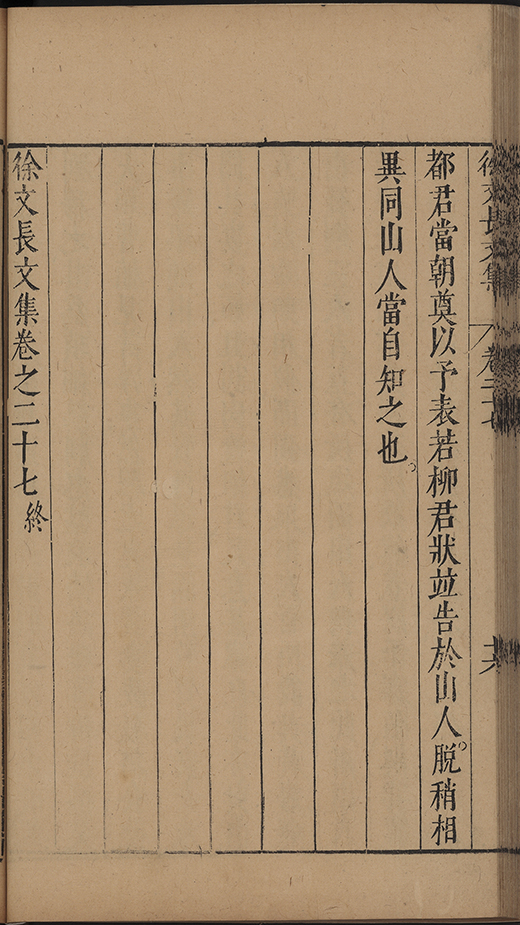 徐文長文集 卷二十七
都君當朝奠以予表若柳君狀並告於山人脫稍相
異同山人當自知之也
徐文長文集卷之二十七終